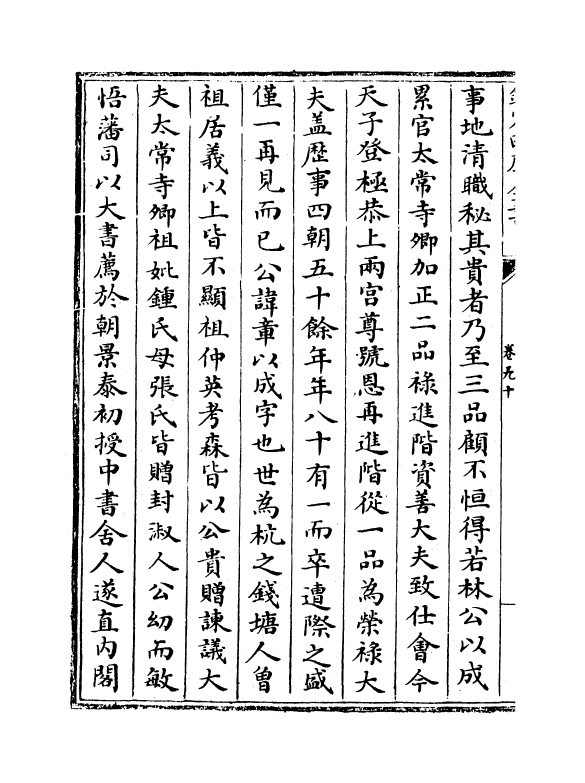 卷九十
事地清職秘其貴者乃至三品顧不恒得若林公以成
累官太常寺卿加正二品祿進階資善大夫致仕會今
天子登極恭上兩宫尊號恩再進階從一品為榮祿大
夫盖歴事四朝五十餘年年八十有一而卒遭際之盛
僅一再見而已公諱章以成字也世為杭之錢塘人曾
祖居義以上皆不顯祖仲英考森皆以公貴贈諫議大
夫太常寺卿祖妣鍾氏母張氏皆贈封淑人公幼而敏
悟藩司以大書薦於朝景泰初授中書舍人遂直内閣